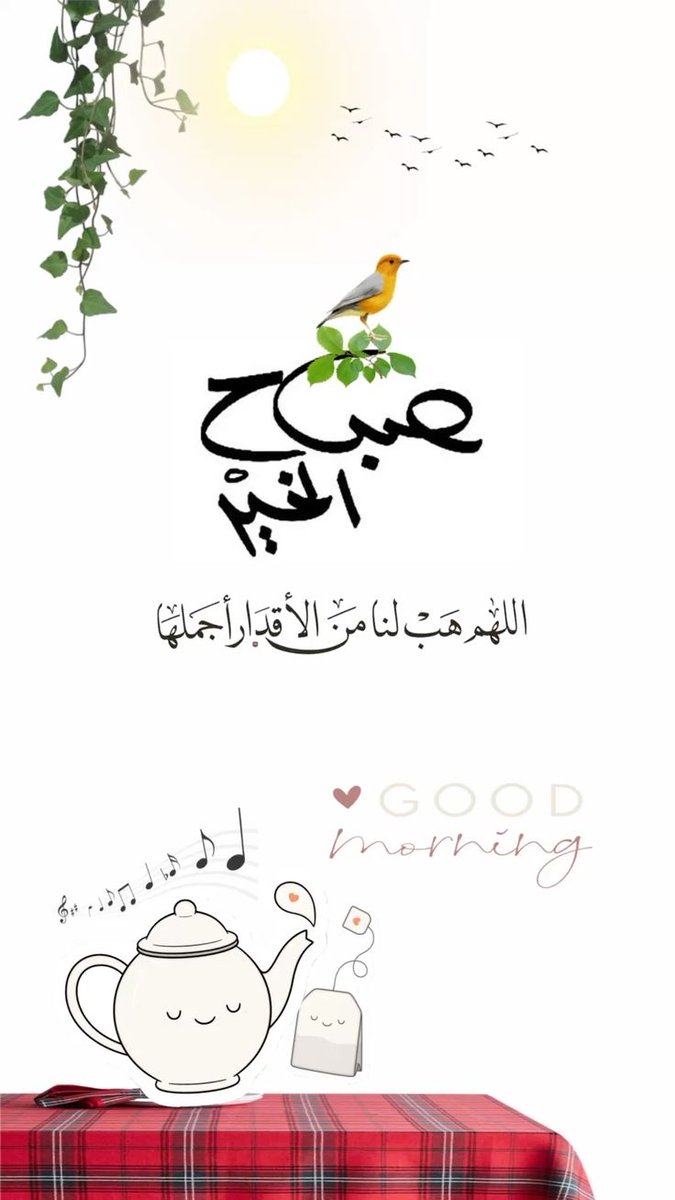 صباح
الخير
اللهم هَبْ لنا مَنَ الأقدَار أجمَلهَا
GOOD
morning